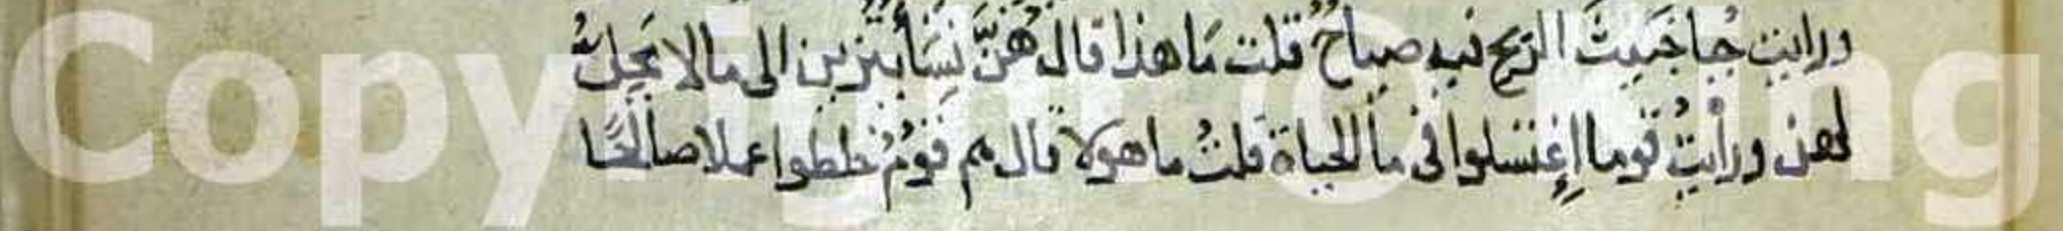 ورايت جبا خبيث الريح فيه صياح قلت ما هذا قال هن نسا يتزين الى ما لا يحل
لهن ورايت قوما اغتسلوا فى ما الحياة قلت ما هولا قال هم قوم خلطوا عملا صالحا
Copyright © King